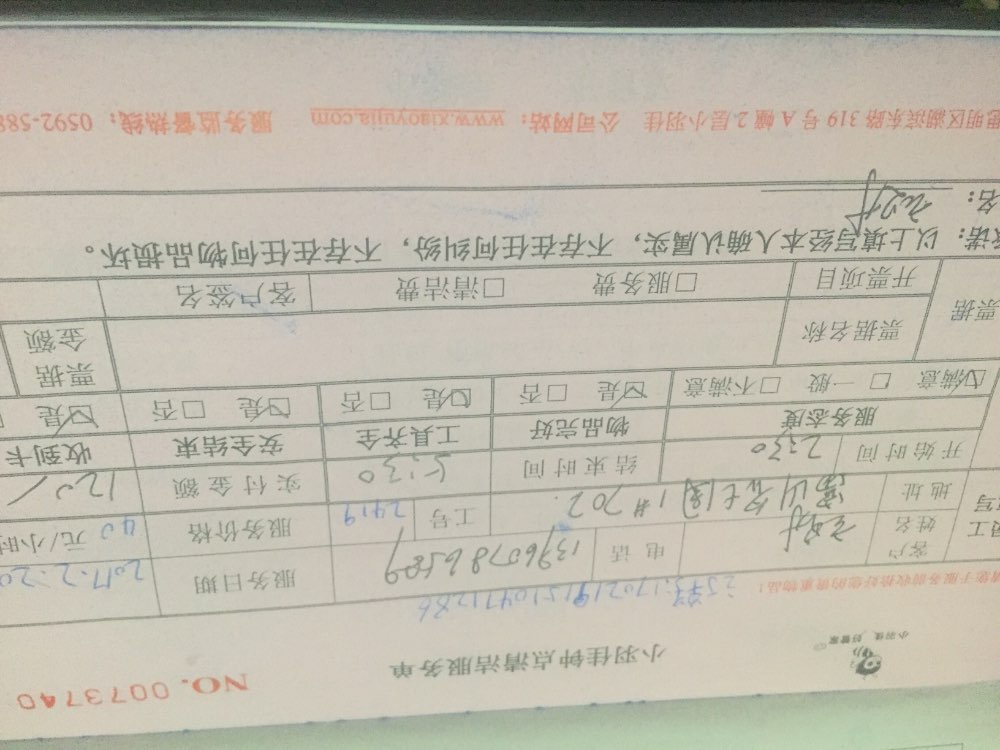 小羽佳 好管家
小羽佳钟点清洁服务单
NO. 0073740
请您于服务前收拾好您的贵重物品！
客户姓名 电话 13960786589 服务日期 2017.2.20
地址 1#702 工号 2419 服务价格 40 元/小时
开始时间 2:30 结束时间 5:30 实付金额 120/
服务态度 物品完好 工具齐全 安全结束 收到卡
☑满意 □一般 □不满意 ☑是 □否 ☑是 □否 ☑是 □否 ☑是
票据 票据名称 票据金额
开票项目 □服务费 □清洁费 客户签名
诺：以上填写经本人确认属实，不存在任何纠纷，不存在任何物品损坏。
名：
思明区湖滨东路319号A幢2层小羽佳 公司网站：www.xiaoyujia.com 服务监督热线：0592-588